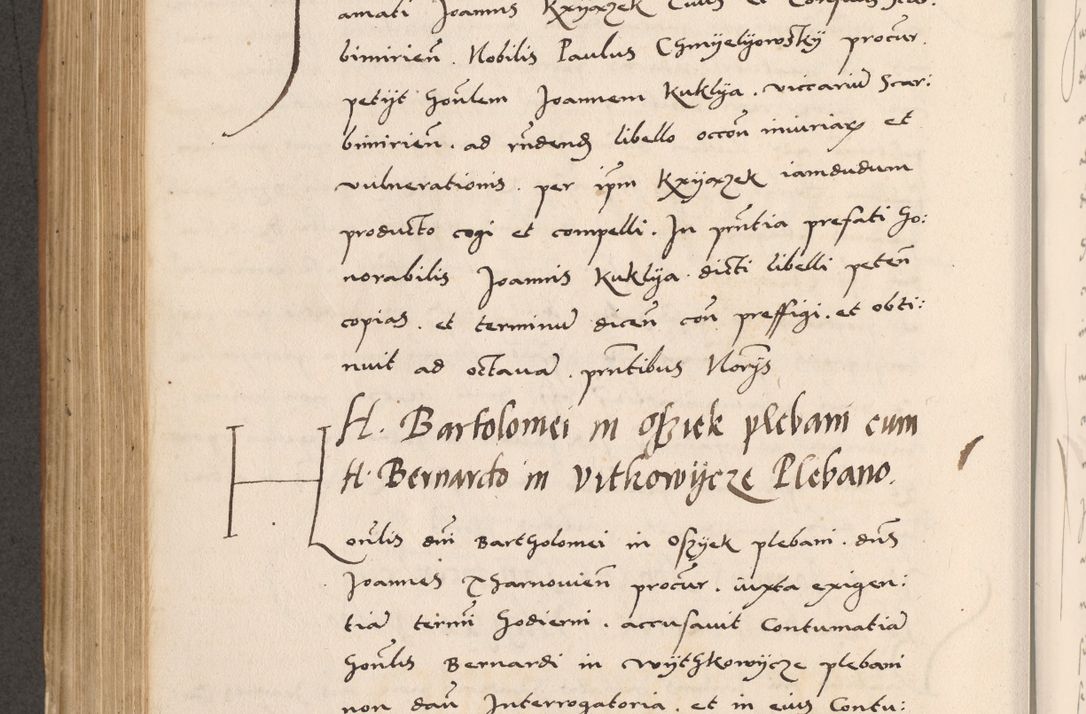 amati Joannis Kxyązek Civis et
bimirien̄. Nobilis Paulus Chmyelyowsky procur̄.
petijt hon̄lem Joannem Kuklya. viccariū Scar:
bimirien̄. ad rn̄dend̄ libello occōn iniuriaꝝ et
vulnerationis. per ip̄m Kxyązek iamdudum
producto cogi et compelli. In pn̄tia prefati ho:
norabilis Joannis Kuklya. dicti libelli peten̄
copias. et terminū dicen̄ con̄ preffigi. et obti:
nuit ad octavā. pn̄tibus Nōrijs
H. Bartolomei in Oſziek plebani cum
H. Bernardo in Vitkowijcze Plebano.
Hon̄lis dn̄i Bartholomei in Oſzyek plebani. dn̄s
Joannes Tharnovien̄ procur̄. iuxta exigen:
tiā termi̅ hodierni. accusavit Contumatiā
hon̄lis Bernardi in Wythkowijcze plebani
non dan̄ Interrogatoria. et in eius Contu: